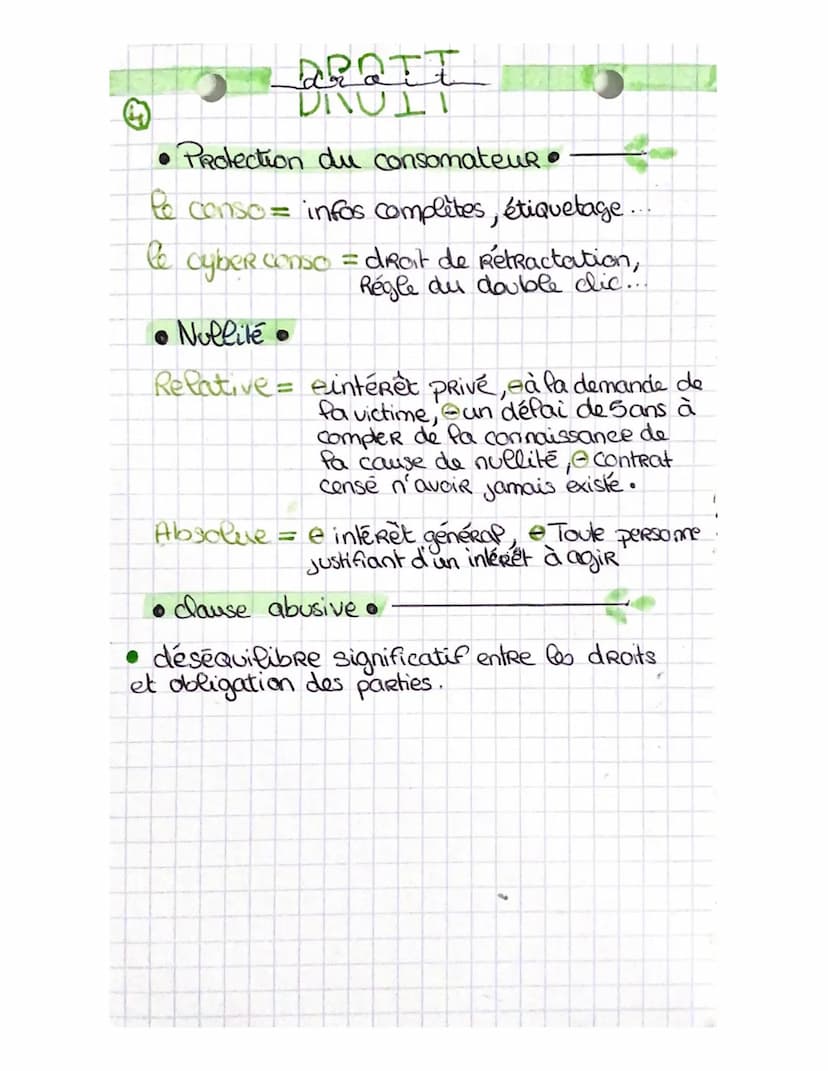 DROIT
droit
④
• Protection du consomateur •
le conso = infos complètes, étiquetage...
le cyber conso = droit de rétractation,
Régle du double clic...
• Nullité •
Relative = ⊖ intérêt privé, ⊖ à la demande de
la victime, ⊖ un délai de 5 ans à
compter de la connaissance de
la cause de nullité, ⊖ contrat
censé n'avoir jamais existé.
Absolue = ⊖ intérêt général, ⊖ Toute personne
justifiant d'un intérêt à agir
• clause abusive •
• déséquilibre significatif entre les droits
et obligation des parties.